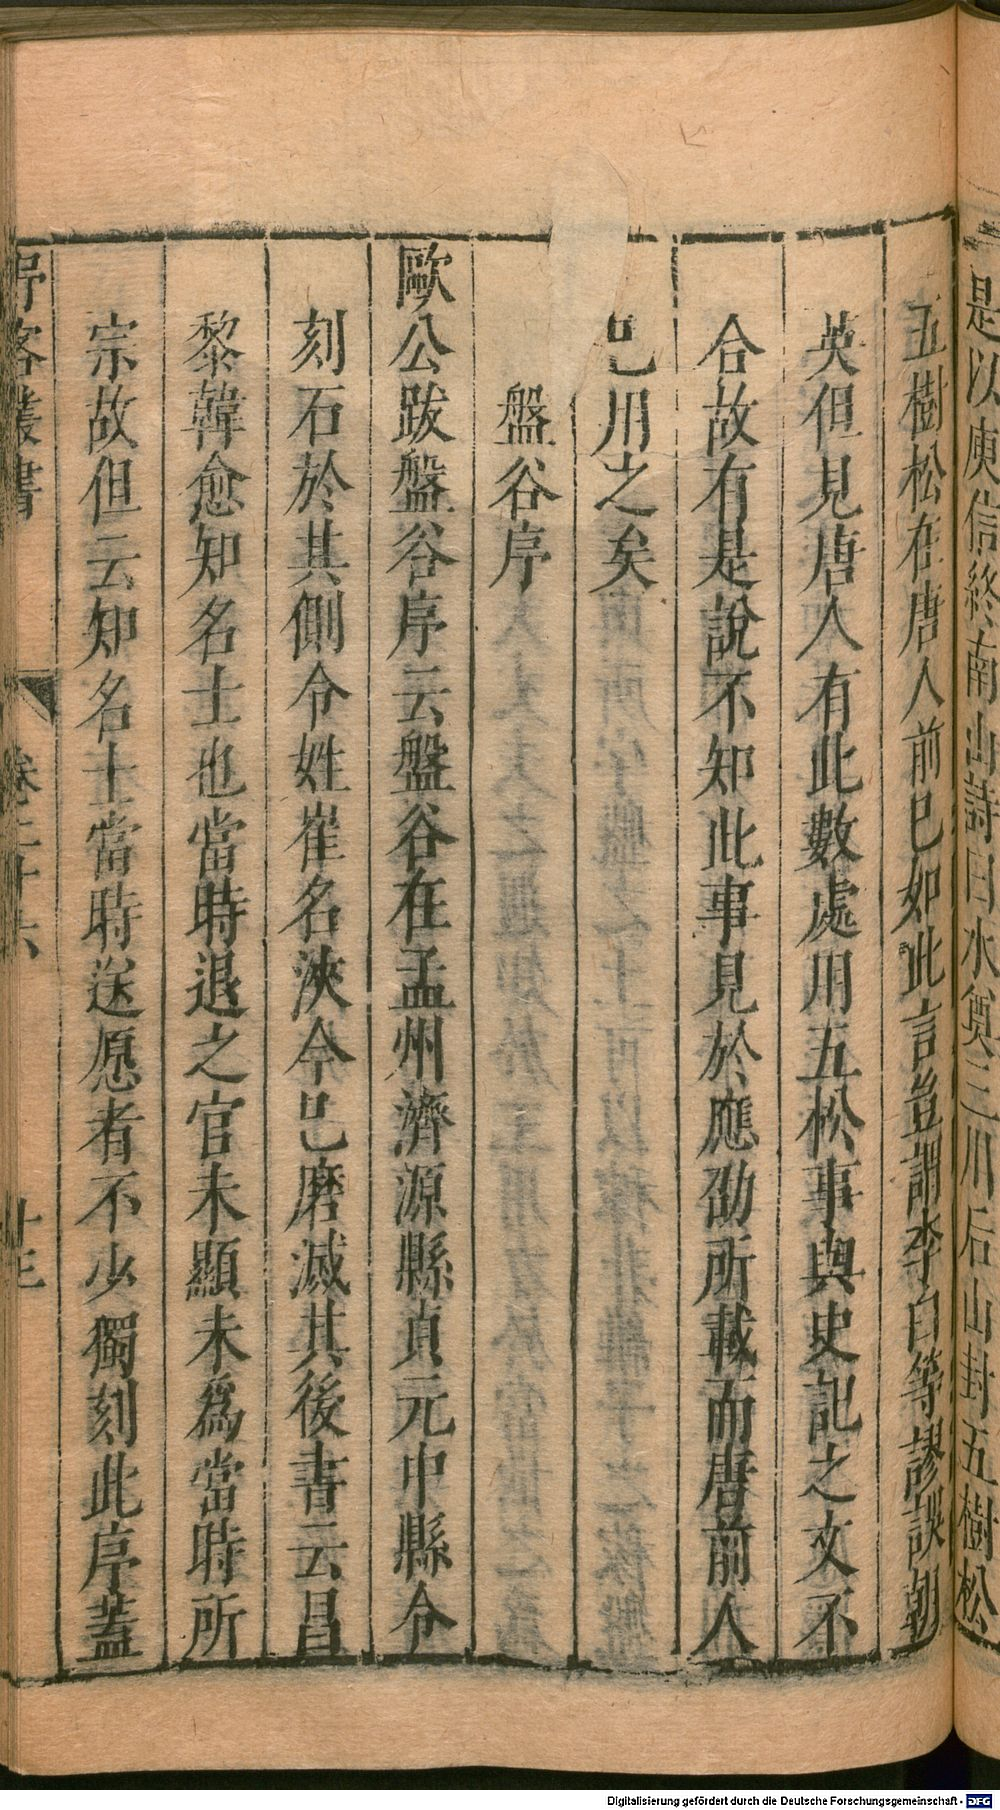 是以庾信終南山詩曰水奠三川后山封五樹松
五樹松在唐人前已如此言豈謂李白等謬誤朝
英但見唐人有此數處用五松事與史記之文不
合故有是說不知此事見於應劭所載而唐前人
已用之矣
盤谷序
歐公跋盤谷序云盤谷在孟州濟源縣貞元中縣令
刻石於其側令姓崔名浹今已磨滅其後書云昌
黎韓愈知名士也當時退之官未顯未為當時所
宗故但云知名士當時送愿者不少獨刻此序蓋
野客叢書
卷二十六
十三
Digitalisierung gefördert durch die Deutsche Forschungsgemeinschaft - DFG